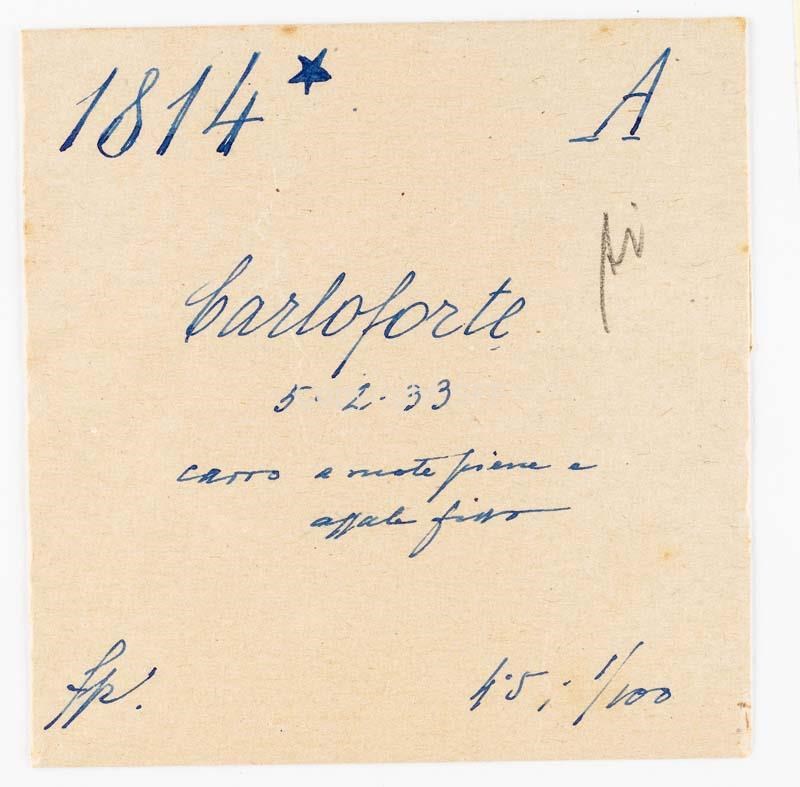 1814* A
Carloforte
5. 2. 33
carro a ruote piene e
assale fisso
fp. 4.5; 1/100